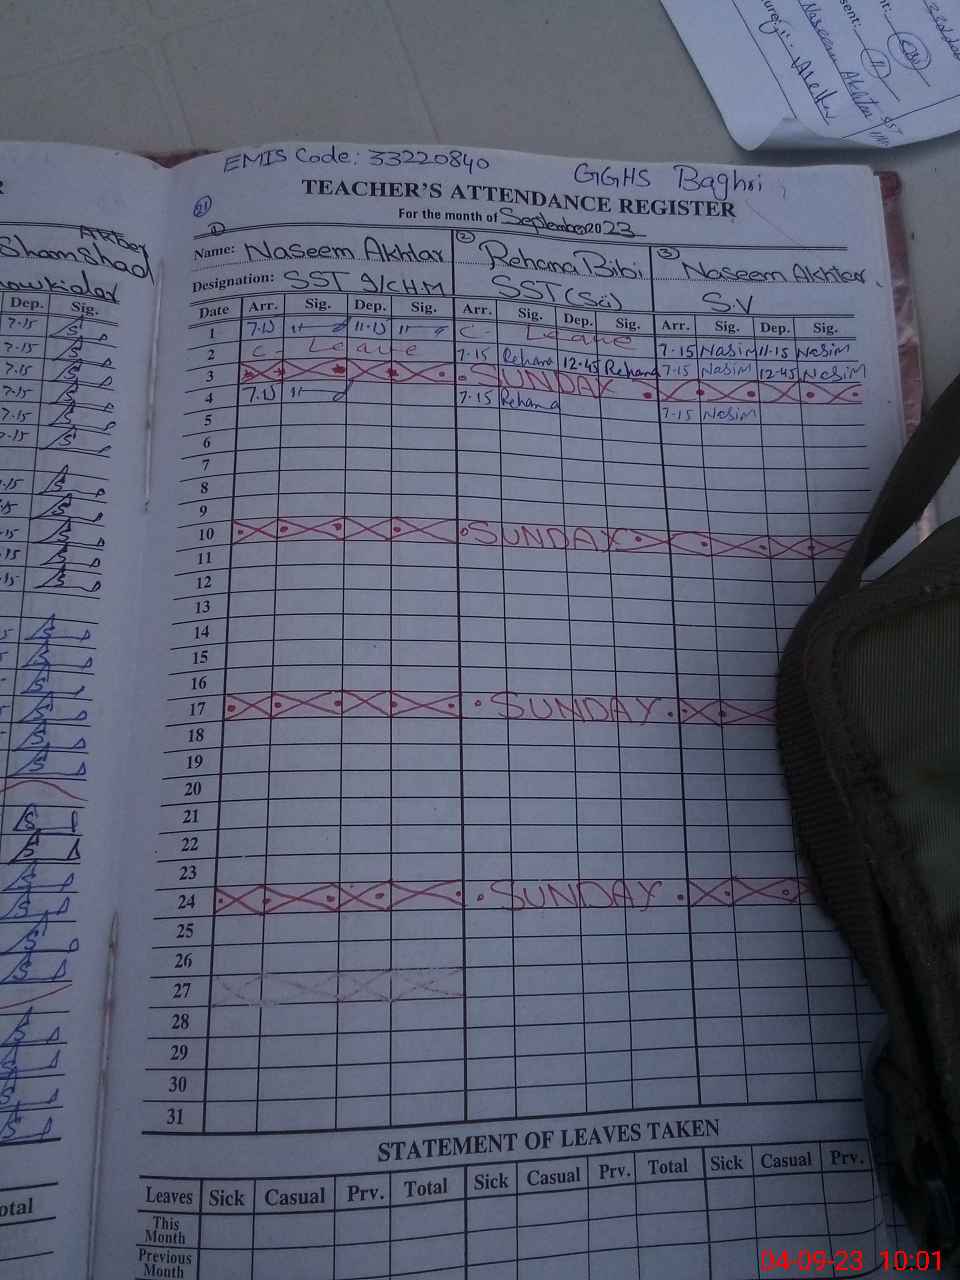 EMIS Code: 33220840 GGHS Baghri
TEACHER'S ATTENDANCE REGISTER
For the month of September 2023
Name: Naseem Akhtar Rehana Bibi Naseem Akhtar
Designation: SST I/C H.M SST (Sci) S.V
Date Arr. Sig. Dep. Sig. Arr. Sig. Dep. Sig. Arr. Sig. Dep. Sig.
1 7.15 11.15 C- Leave 7-15 Nasim 11-15 Nasim
2 C- Leave 7-15 Rehana 12-45 Rehana 7-15 Nasim 12-45 Nasim
3 SUNDAY
4 7.15 7-15 Rehana 7-15 Nasim
5
6
7
8
9
10 SUNDAY
11
12
13
14
15
16
17 SUNDAY
18
19
20
21
22
23
24 SUNDAY
25
26
27
28
29
30
31
STATEMENT OF LEAVES TAKEN
Leaves Sick Casual Prv. Total Sick Casual Prv. Total Sick Casual Prv.
This
Month
Previous
Month
Shamshad
Dep. Sig.
7-15
7.15
7.15
7-15
7-15
04-09-23 10:01